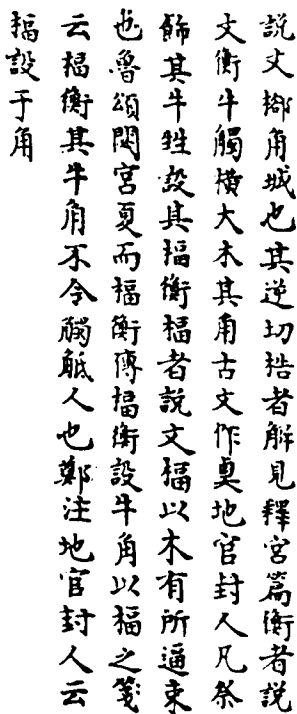 說文𨞠角城也其逆切梏者解見釋宮篇衡者說
文衡牛觸橫大木其角古文作𡘋地官封人凡祭
飾其牛牲設其楅衡楅者說文楅以木有所逼束
也魯頌閟宮夏而楅衡傳楅衡設牛角以楅之箋
云楅衡其牛角不令觸觝人也鄭注地官封人云
楅設于角